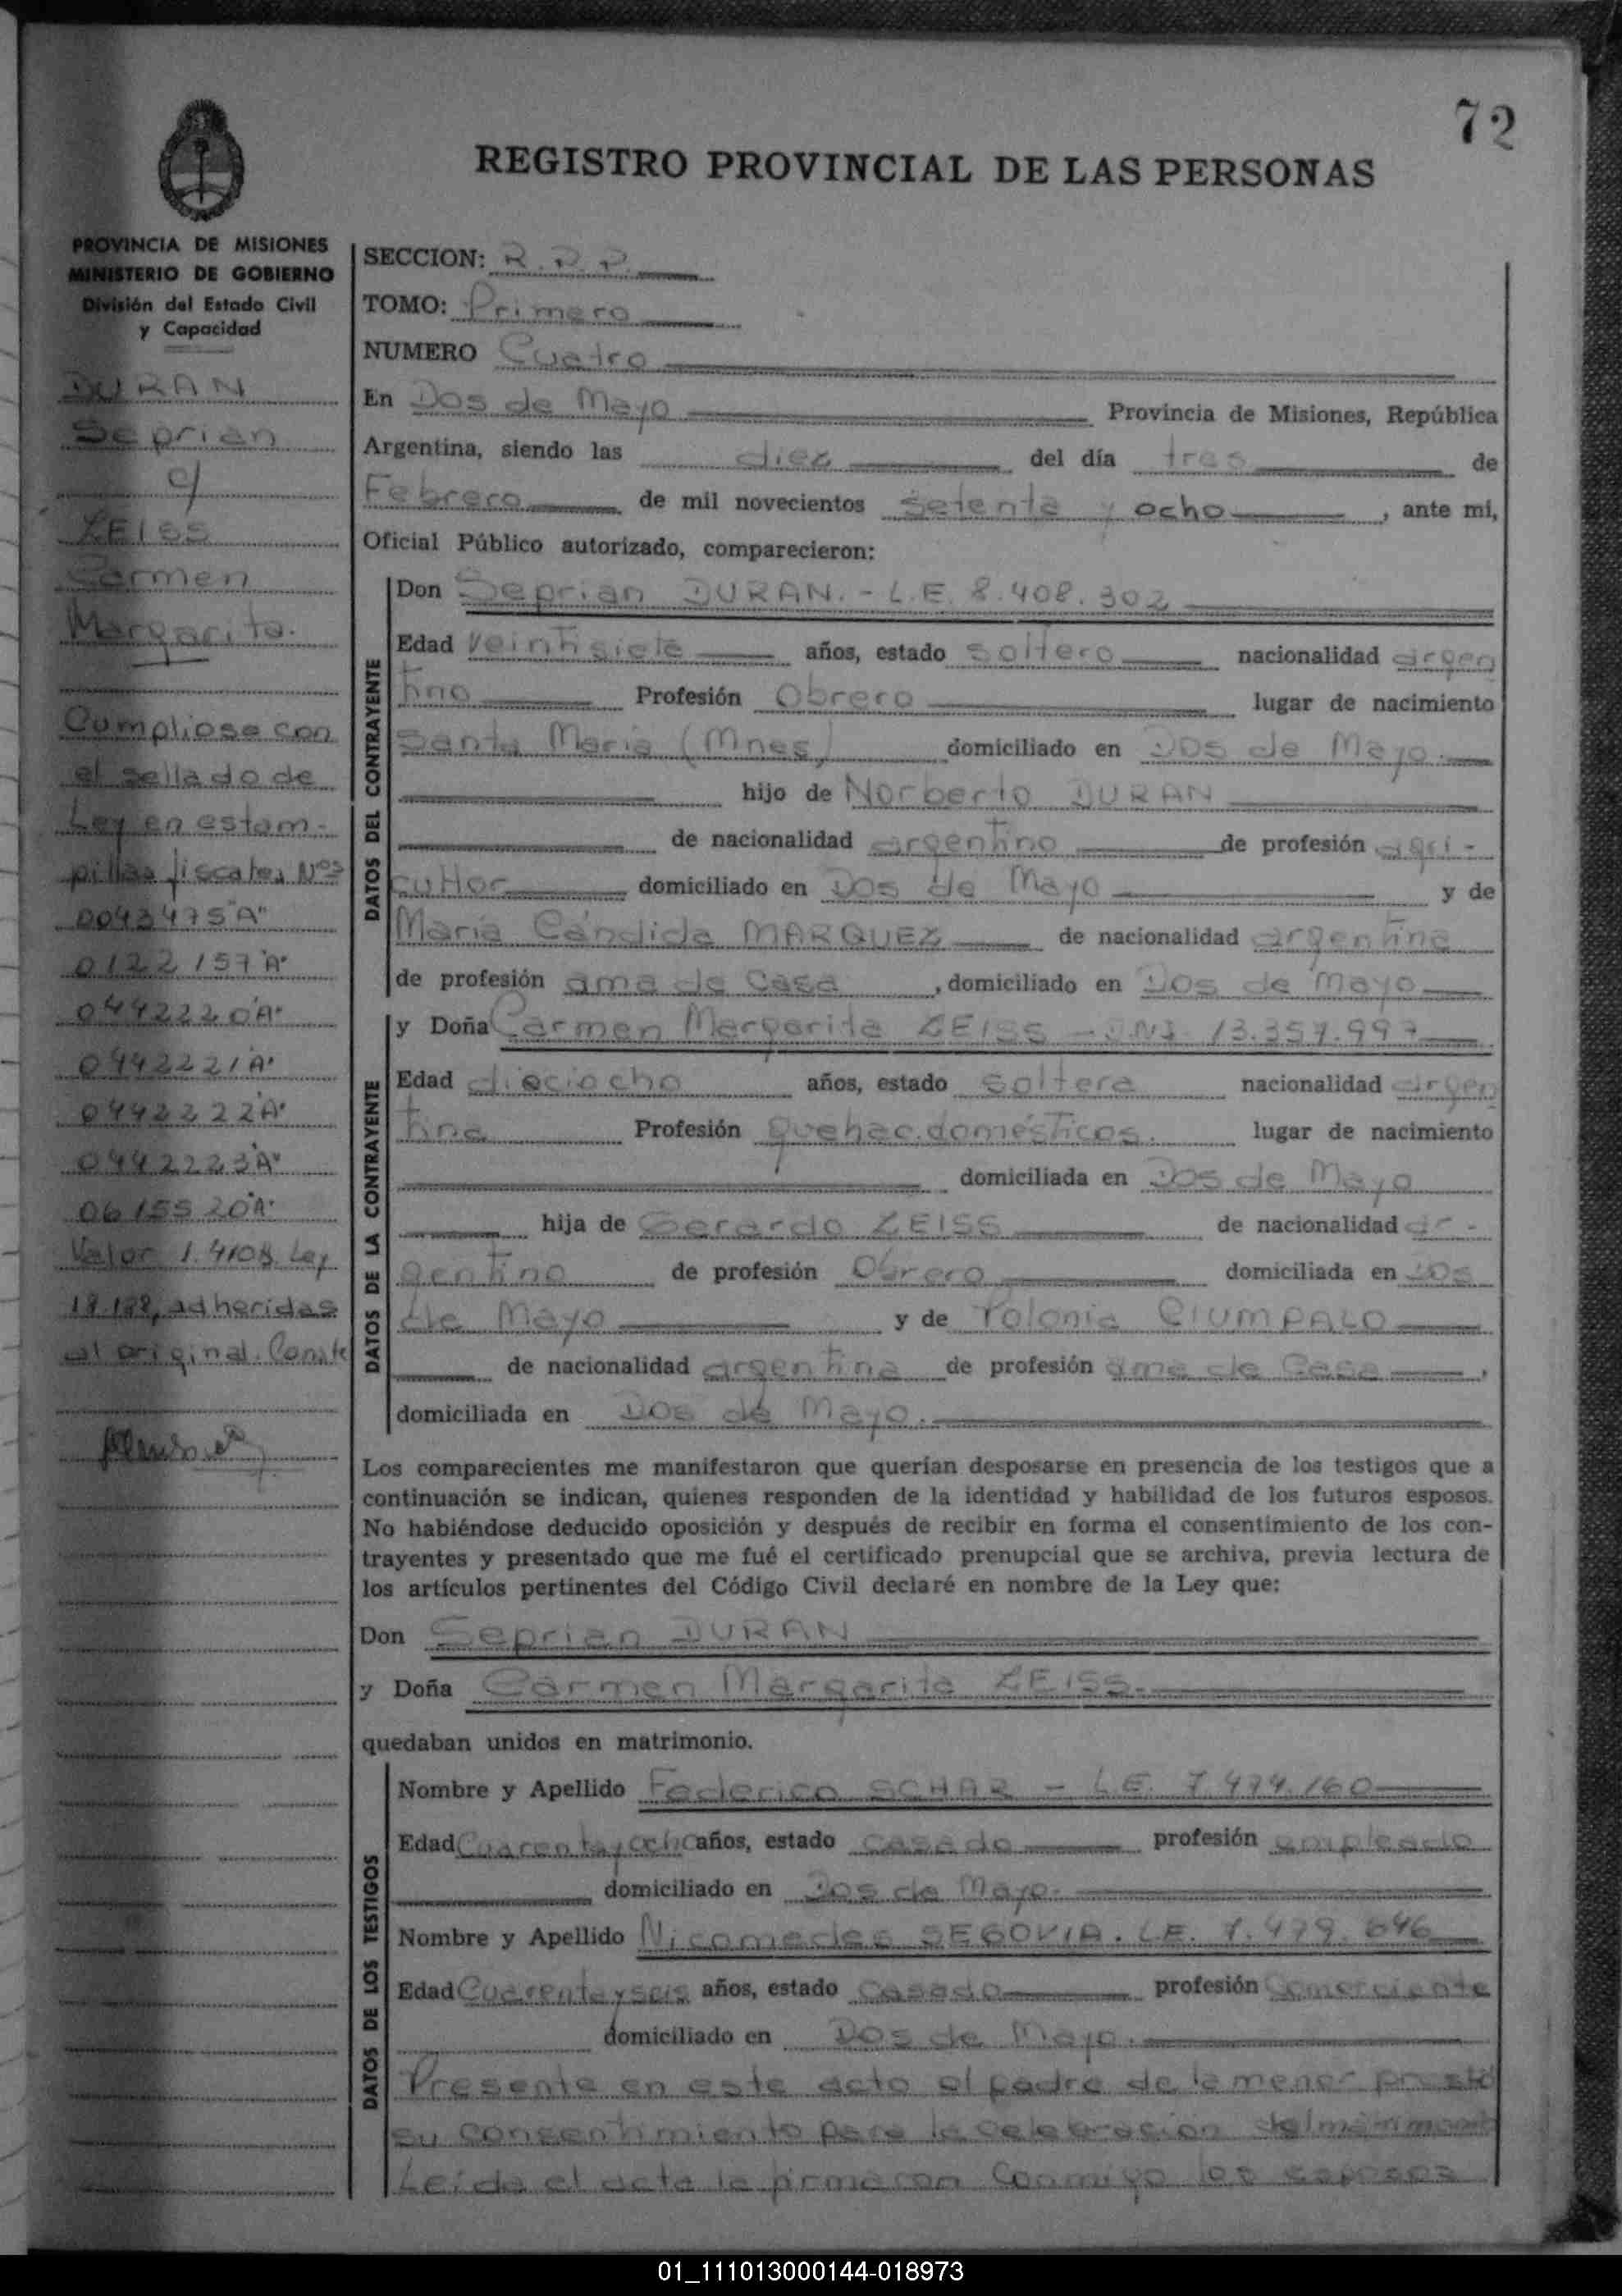 72
REGISTRO PROVINCIAL DE LAS PERSONAS
PROVINCIA DE MISIONES
MINISTERIO DE GOBIERNO
División del Estado Civil
y Capacidad
DURAN
Seprian
c/
ZEISS
Carmen
Margarita.
Cumpliose con
el sellado de
Ley en estam-
pillas fiscales Nos
0043475"A"
0122157"A"
0442220"A"
0442221"A"
0442222"A"
0442223"A"
0615520"A"
Valor 1.410$ Ley
18.188, adheridas
al original. Conste
SECCION: R.P.P.
TOMO: Primero
NUMERO Cuatro
En Dos de Mayo Provincia de Misiones, República
Argentina, siendo las diez del día tres de
Febrero de mil novecientos setenta y ocho, ante mi,
Oficial Público autorizado, comparecieron:
DATOS DEL CONTRAYENTE
Don Seprian DURAN.- L.E. 8.408.302
Edad veintisiete años, estado soltero nacionalidad argen
tino Profesión Obrero lugar de nacimiento
Santa María (Mnes) domiciliado en Dos de Mayo.
hijo de Norberto DURAN
de nacionalidad argentino de profesión agri-
cultor domiciliado en Dos de Mayo y de
María Cándida MARQUEZ de nacionalidad argentina
de profesión ama de casa, domiciliado en Dos de Mayo
DATOS DE LA CONTRAYENTE
y Doña Carmen Margarita ZEISS - DNI 13.357.997
Edad dieciocho años, estado soltera nacionalidad argen
tina Profesión quehac. domésticos. lugar de nacimiento
domiciliada en Dos de Mayo
hija de Gerardo ZEISS de nacionalidad ar-
gentino de profesión Obrero domiciliada en Dos
de Mayo y de Polonia CIUMPALO
de nacionalidad argentina de profesión ama de Casa,
domiciliada en Dos de Mayo.
Los comparecientes me manifestaron que querían desposarse en presencia de los testigos que a
continuación se indican, quienes responden de la identidad y habilidad de los futuros esposos.
No habiéndose deducido oposición y después de recibir en forma el consentimiento de los con-
trayentes y presentado que me fué el certificado prenupcial que se archiva, previa lectura de
los artículos pertinentes del Código Civil declaré en nombre de la Ley que:
Don Seprian DURAN
y Doña Carmen Margarita ZEISS.
quedaban unidos en matrimonio.
DATOS DE LOS TESTIGOS
Nombre y Apellido Federico SCHAR - L.E. 7.474.160
Edad Cuarenta y ocho años, estado casado profesión empleado
domiciliado en Dos de Mayo.
Nombre y Apellido Nicomedes SEGOVIA. L.E. 7.479.646
Edad Cuarenta y seis años, estado casado profesión Comerciante
domiciliado en Dos de Mayo.
Presente en este acto el padre de la menor prestó
su consentimiento para la celebración del matrimonio
Leída el acta la firmaron conmigo los esposos
01_111013000144-018973